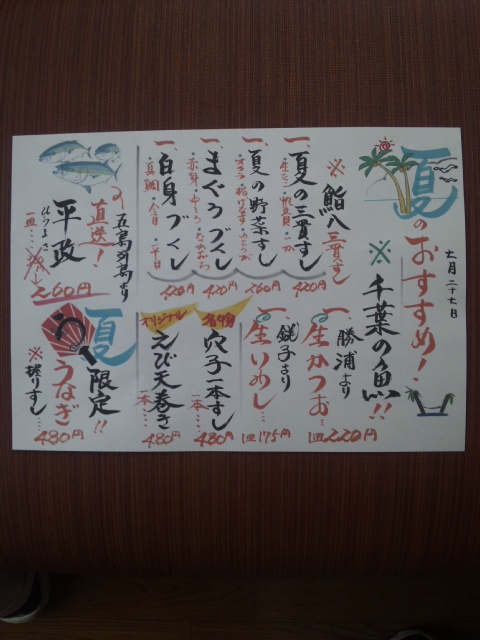 七月二十七日
夏のおすすめ!
※千葉の魚!!
※鮨八三貫すし
一、夏の三貫すし
420円
一、夏の野菜すし
420円
一、まぐろづくし
420円
一、白身づくし
420円
勝浦より
一、生かつお…
1皿220円
銚子より
一、生いわし…
1皿175円
名物
穴子一本すし
一本…
480円
オリジナル
えび天巻き
一本…
480円
五島列島より
直送!
平政
ひらまさ
一皿…
260円
夏限定!!
うなぎ
※握りすし…
480円